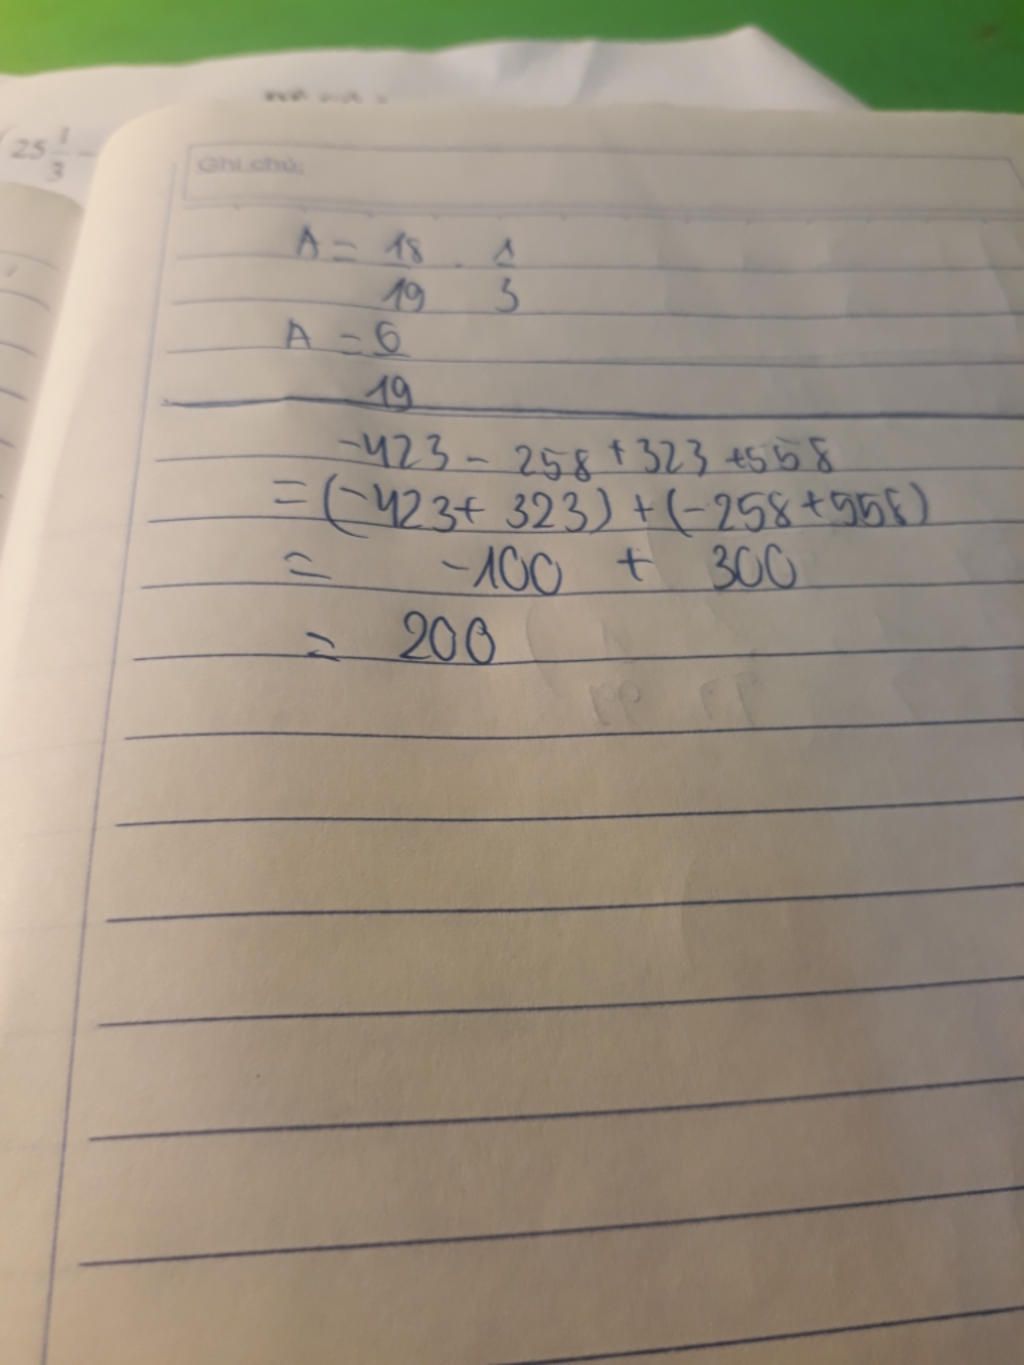 25 1/3 -
Ghi chú:
A = 18/19 . 1/3
A = 6/19
-423 - 258 + 323 + 558
= (-423 + 323) + (-258 + 558)
= -100 + 300
= 200